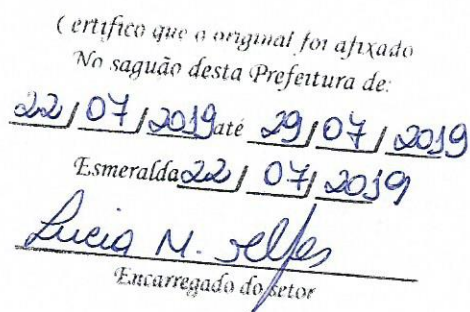 Certifico que o original foi afixado
No saguão desta Prefeitura de:
22/07/2019 até 29/07/2019
Esmeralda 22/07/2019
Lucia M.
Encarregado do setor